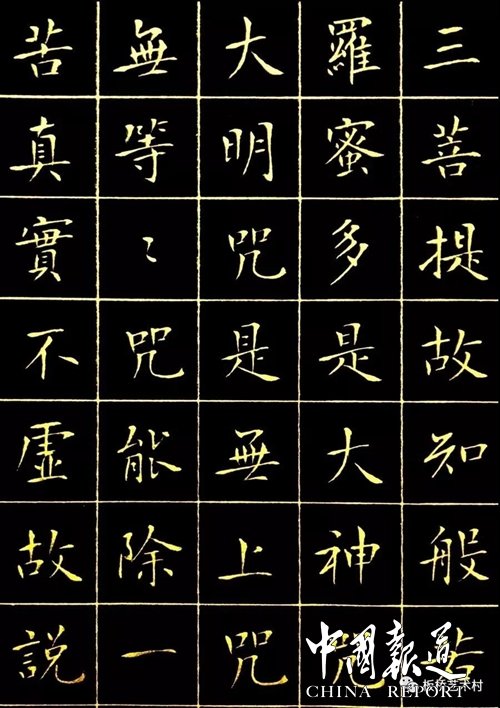 三菩提故知般若
羅蜜多是大神咒
大明咒是無上咒
無等〻咒能除一
苦真實不虛故説
中國報道
CHINA REPORT
板桥艺术村